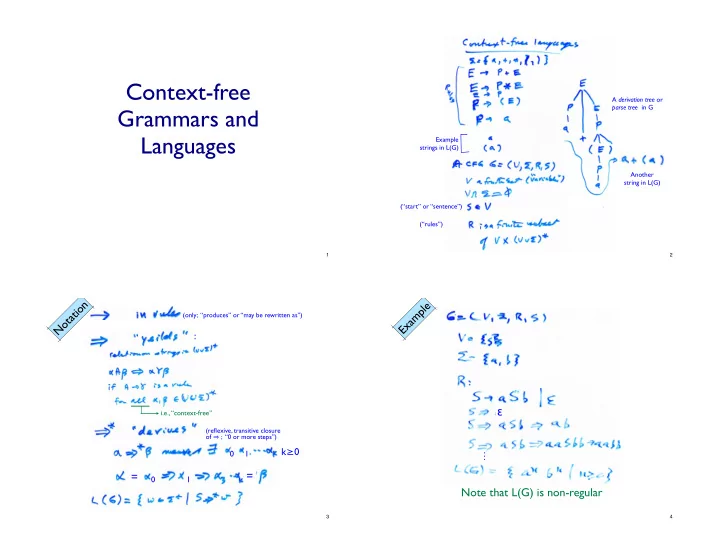 Context-free
Grammars and
Languages
1
Context-free languages
Σ={a,+,*,(,)}
E → P+E
E → P*E
E → P
P → (E)
P → a
E
P E
a + P
( E )
P
a
A derivation tree or
parse tree in G
Example
strings in L(G)
a
(a)
a+(a)
Another
string in L(G)
A CFG G=(V,Σ,R,S)
V a finite set ("variables")
V∩Σ=ϕ
("start" or "sentence") S ∈ V
("rules") R is a finite subset
of V×(V∪Σ)*
2
Notation
→ in rules (only; "produces" or "may be rewritten as")
⇒ "yeilds" :
relation on strings in (V∪Σ)*
αAβ ⇒ αγβ
if A→γ is a rule
for all α,β ∈ (V∪Σ)*
i.e., "context-free"
⇒* "derives" (reflexive, transitive closure
of ⇒ ; "0 or more steps")
α ⇒* β means ∃ α0 α1.…αk k≥0
α = α0 ⇒ α1 ⇒ α2 … αk = β
L(G)={ w∈Σ* | S⇒*w }
3
Example
G=(V,Σ,R,S)
V={S}
Σ={a,b}
R:
S→aSb | ε
S⇒ ε
S⇒ aSb ⇒ ab
S⇒ aSb ⇒aaSbb⇒aabb
⋮
L(G)= { aⁿ bⁿ | n≥0}
Note that L(G) is non-regular
4